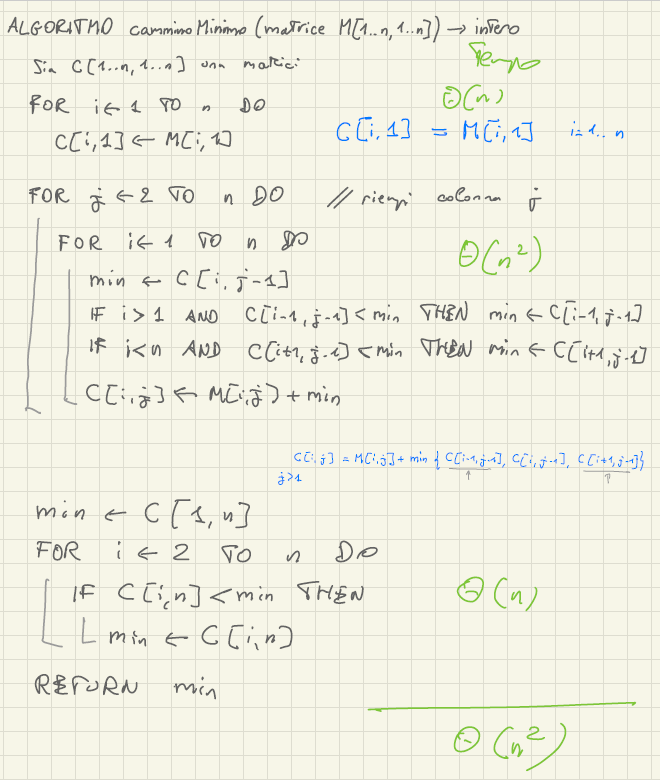 ALGORITMO camminoMinimo (matrice M[1..n,1..n]) → intero
Tempo
Sia C[1..n,1..n] una matrice
FOR i ← 1 TO n DO
Θ(n)
C[i,1] ← M[i,1]
C[i,1] = M[i,1] i=1..n
FOR j ← 2 TO n DO // riempi colonna j
FOR i ← 1 TO n DO
Θ(n²)
min ← C[i,j-1]
IF i>1 AND C[i-1,j-1] < min THEN min ← C[i-1,j-1]
IF i<n AND C[i+1,j-1] < min THEN min ← C[i+1,j-1]
C[i,j] ← M[i,j] + min
C[i,j] = M[i,j] + min { C[i-1,j-1], C[i,j-1], C[i+1,j-1]}
j>1
min ← C[1,n]
FOR i ← 2 TO n DO
IF C[i,n] < min THEN
Θ(n)
min ← C[i,n]
RETURN min
Θ(n²)